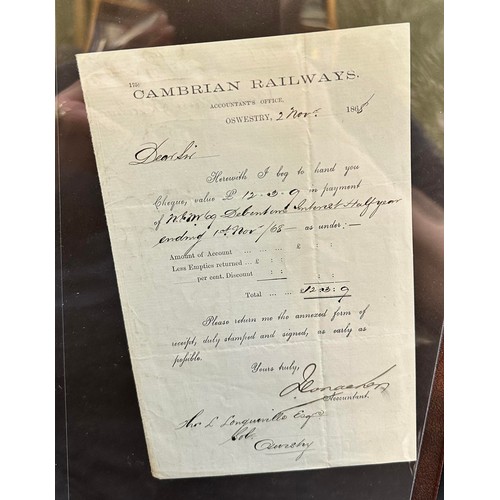 THE
CAMBRIAN RAILWAYS.
ACCOUNTANT'S OFFICE,
OSWESTRY, 2 Nov. 1868
Dear Sir
Herewith I beg to hand you
Cheque, value £ 12-3-9 in payment
of Debenture Interest Half year
ending 1st Nov /68 — as under:—
Amount of Account ... ... £ : :
Less Empties returned ... £ : :
per cent. Discount : : : :
Total ... ... 12:3:9
Please return me the annexed form of
receipt, duly stamped and signed, as early as
possible.
Yours truly,
Accountant.
L Longueville Esqr
Sol.
Oswestry